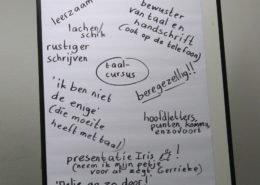 leerzaam
lachen/
schik
rustiger
schrijven
bewuster
van taal en
handschrift
(ook op de telefoon)
taal-
cursus
beregezellig!!
'ik ben niet
de enige'
(die moeite
heeft met taal)
hoofdletters,
punten, komma,
enzovoort
presentatie Iris !
(neem ik mijn petje
voor af zegt Gerrieke)
zo door!'